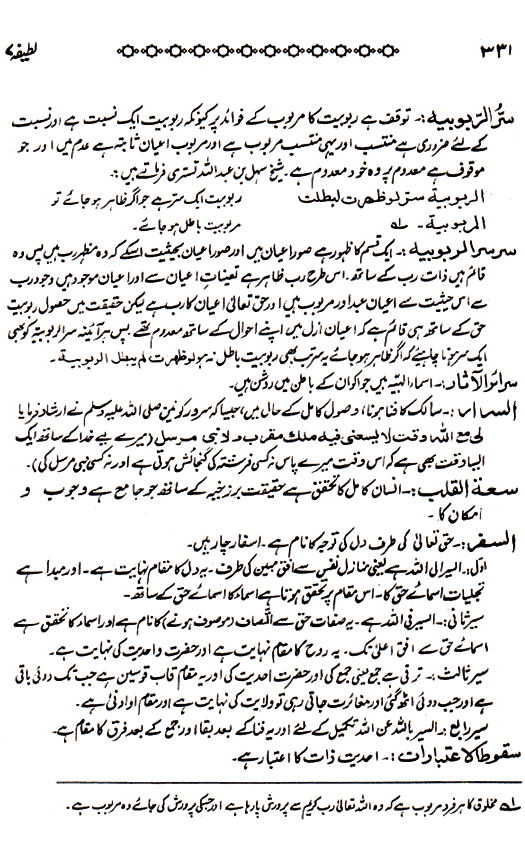 ۳۳۱ لطیفہ ۷
سرُّ الرّبوبیہ:۔ توقف ہے ربوبیت کا مربوب کے فوائد پر کیونکہ ربوبیت ایک نسبت ہے اور نسبت
کے لئے ضروری ہے منتسب اور یہی منتسب مربوب ہے اور مربوب اعیان ثابتہ ہے عدم میں اور جو
موقوف ہے معدوم پر وہ خود معدوم ہے۔ شیخ سہل بن عبداللہ تستری فرماتے ہیں:۔
الربوبیة سر لو ظهرت لبطلت ربوبیت ایک سر ہے جو اگر ظاہر ہو جائے تو
الربوبیة۔ ؎۱ مربوبیت باطل ہو جائے۔
سر سر الربوبیہ:۔ ایک قسم کا ظہور ہے صور اعیان میں اور صور اعیان بحیثیت اسکے کہ وہ مظہر رب ہیں پس وہ
قائم ہیں ذات رب کے ساتھ۔ اس طرح رب ظاہر ہے تعینات اعیان سے اور اعیان موجود ہیں وجود رب
سے اس حیثیت سے اعیان عبد اور مربوب ہیں اور حق تعالیٰ اعیان کا رب ہے لیکن حقیقت میں حصول ربوبیت
حق کے ساتھ ہی قائم ہے کہ اعیان ازل میں اپنے احوال کے ساتھ معدوم تھے۔ پس ہر آئینہ سر الربوبیہ کو بھی
ایک سر ہونا چاہیئے کہ اگر ظاہر ہو جائے یہ سر تب بھی ربوبیت باطل نہ ہو لو ظهرت لم یبطل الربوبیة۔
سرائر الآثار:۔ اسماء الٰہیہ ہیں جو اکوان کے باطن میں روشن ہیں۔
السرار:۔ سالک کا فنا ہونا، وصول کامل کے حال میں، جیسا کہ سرور کونین صلی اللہ علیہ وسلم نے ارشاد فرمایا
لی مع الله وقت لا یسعنی فیه ملك مقرب ولا نبی مرسل (میرے لیے خدا کے ساتھ ایک
ایسا وقت بھی ہے کہ اس وقت میرے پاس نہ کسی فرشتہ کی گنجائش ہوتی ہے اور نہ کسی نبی مرسل کی)۔
سعة القلب:۔ انسان کامل کا تحقق ہے حقیقت برزخیہ کے ساتھ جو جامع ہے وجوب و
امکان کا۔
السفر:۔ حق تعالیٰ کی طرف دل کی توجہ کا نام ہے۔ اسفار چار ہیں۔
اوّل:۔ السیر الی اللہ ہے یعنی منازل نفس سے افق مبین کی طرف۔ یہ دل کا مقام نہایت ہے۔ اور مبدا ہے
تجلیات اسمائے حق کا۔ اس مقام پر تحقق ہوتا ہے اسماء کا اسمائے حق کے ساتھ۔
سیر ثانی:۔ السیر فی اللہ ہے۔ یہ صفات حق سے اتّصاف (موصوف ہونے) کا نام ہے اور اسماء کا تحقق ہے
اسمائے حق سے افق اعلیٰ تک۔ یہ روح کا مقام نہایت ہے اور حضرت واحدیت کی نہایت ہے۔
سیر ثالث:۔ ترقی ہے جمع یعنی جمع کی اور حضرت احدیت کی اور یہ مقام قاب قوسین ہے جب تک دوئی باقی
ہے اور جب دوئی اٹھ گئی اور مغائرت جاتی رہی تو ولایت کی نہایت ہے اور مقام او ادنیٰ ہے۔
سیر رابع:۔ السیر باللہ عن اللہ تکمیل کے لئے اور یہ فنا کے بعد بقا اور جمع کے بعد فرق کا مقام ہے۔
سقوط الاعتبارات:۔ احدیت ذات کا اعتبار ہے۔
؎۱ مخلوق کا ہر فرد مربوب ہے کہ وہ اللہ تعالیٰ رب کریم سے پرورش پا رہا ہے اور جسکی پرورش کی جائے وہ مربوب ہے۔